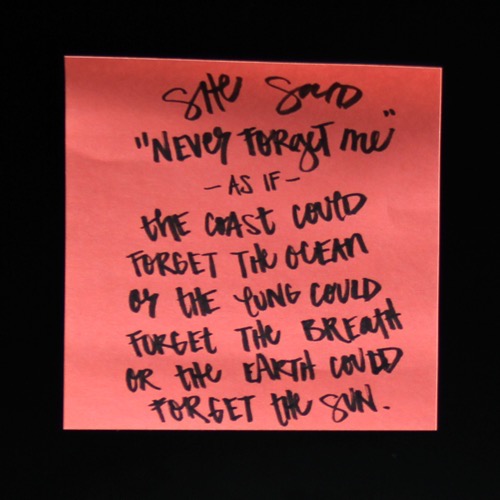 SHE SAID
"NEVER FORGET ME"
- AS IF -
THE COAST COULD
FORGET THE OCEAN
OR THE LUNG COULD
FORGET THE BREATH
OR THE EARTH COULD
FORGET THE SUN.